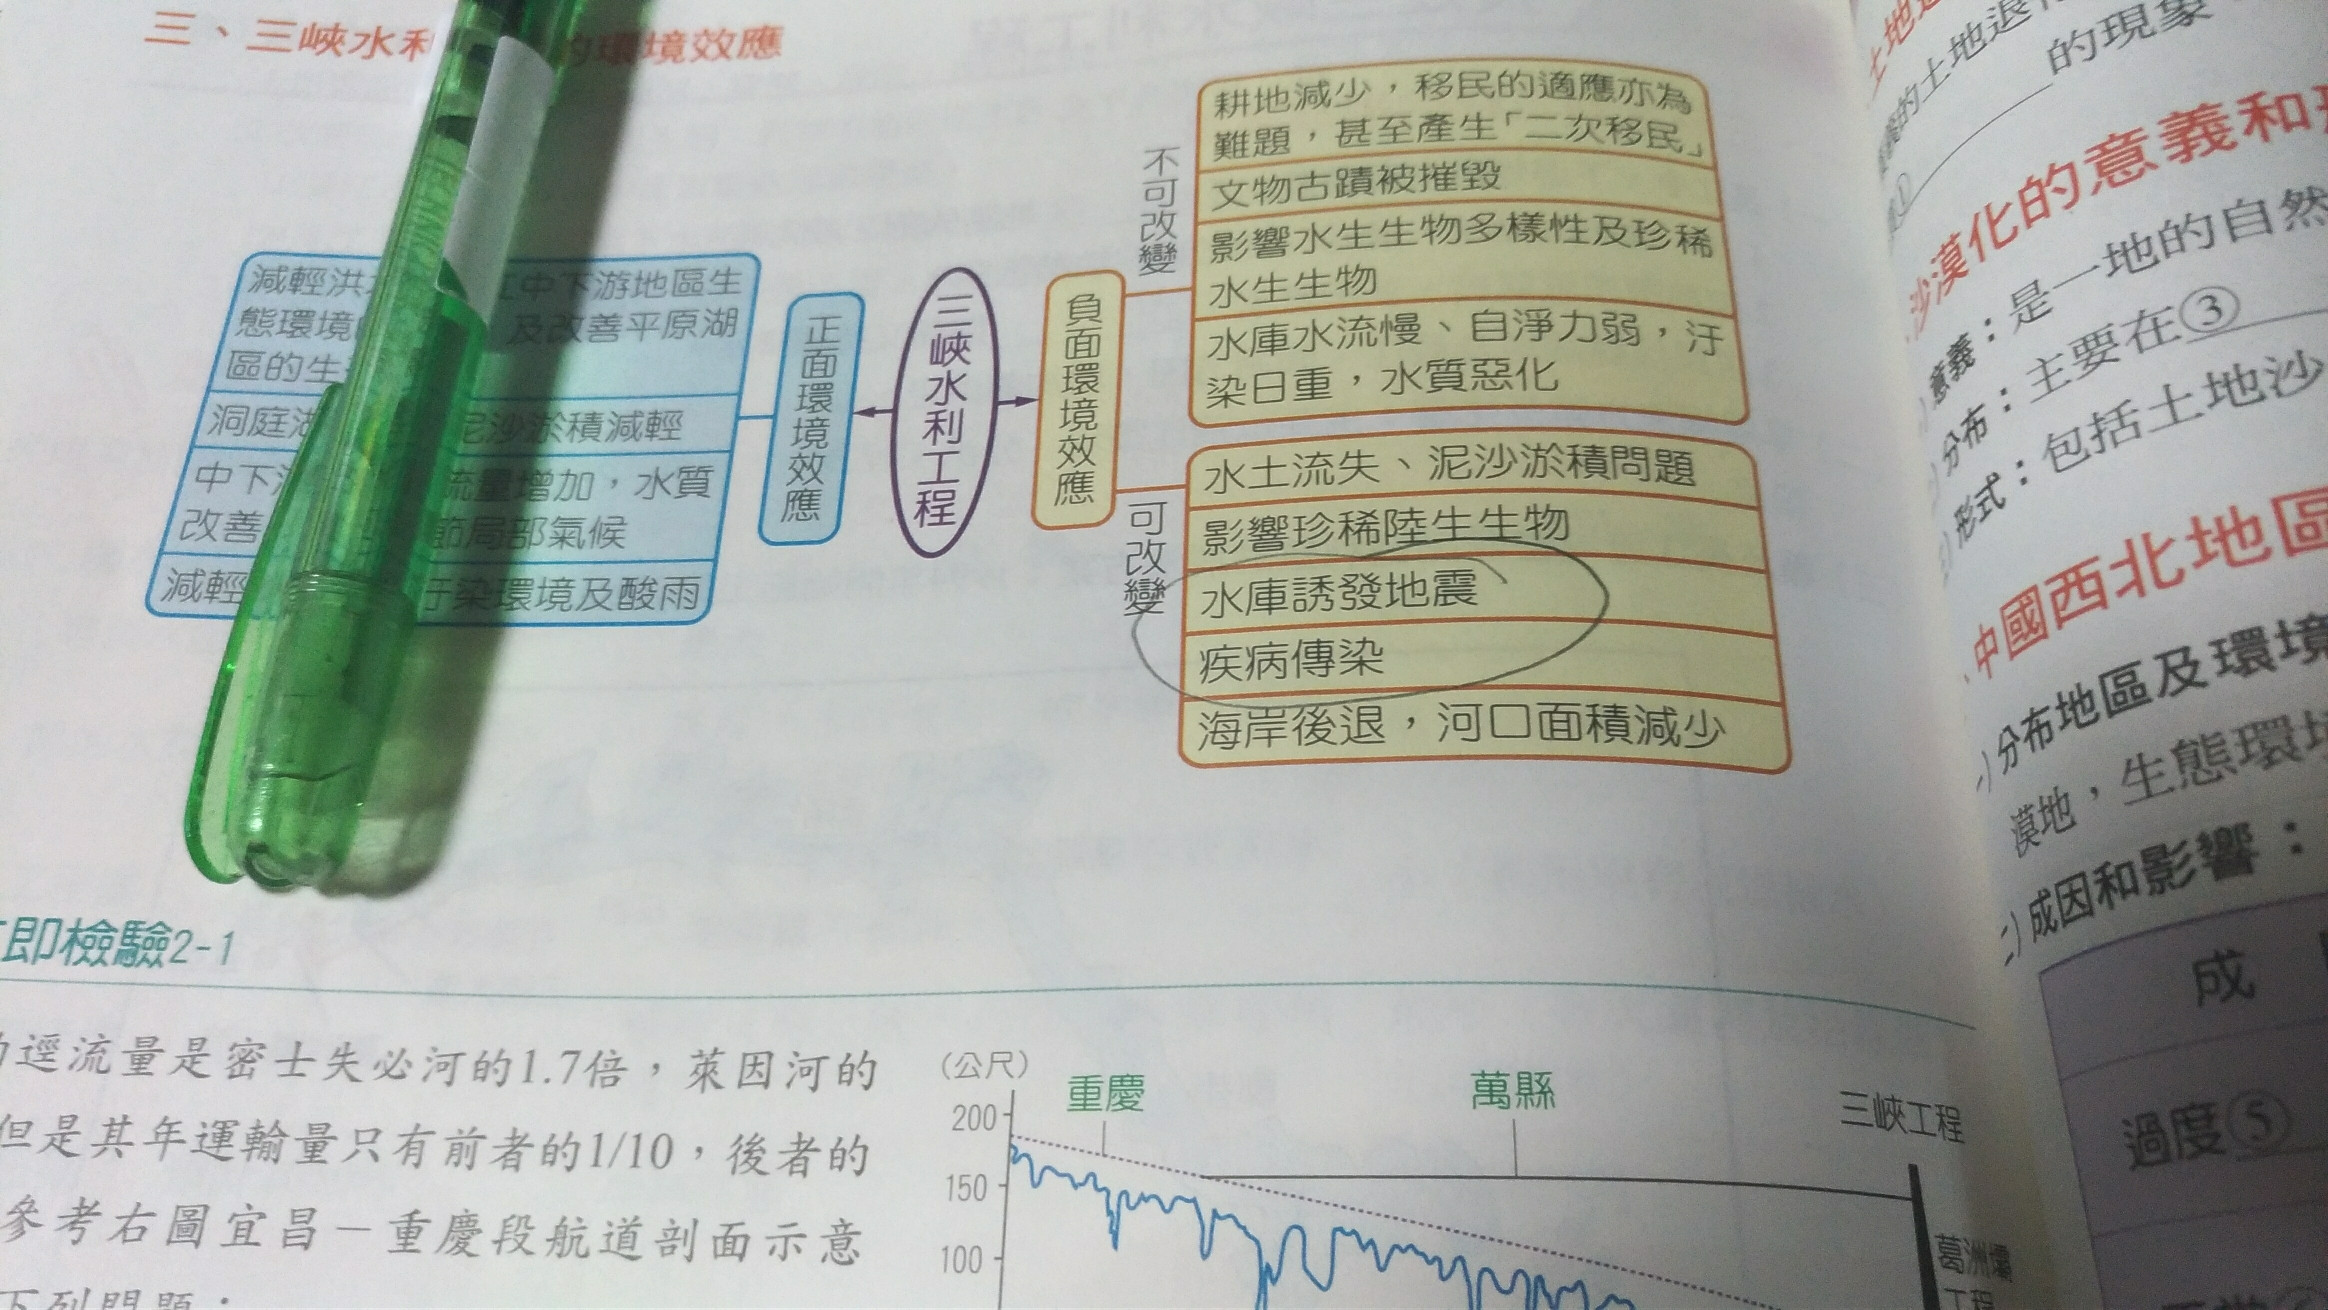 三、三峽水利 的環境效應
耕地減少，移民的適應亦為
難題，甚至產生「二次移民」
文物古蹟被摧毀
影響水生生物多樣性及珍稀
水生生物
水庫水流慢、自淨力弱，汙
染日重，水質惡化
不可改變
減輕洪 中下游地區生
態環境 及改善平原湖
區的生
洞庭湖 泥沙淤積減輕
中下游 流量增加，水質
改善 節局部氣候
減輕 汙染環境及酸雨
正面環境效應
三峽水利工程
負面環境效應
可改變
水土流失、泥沙淤積問題
影響珍稀陸生生物
水庫誘發地震
疾病傳染
海岸後退，河口面積減少
即檢驗2-1
逕流量是密士失必河的1.7倍，萊因河的
但是其年運輸量只有前者的1/10，後者的
參考右圖宜昌－重慶段航道剖面示意
下列問題：
(公尺)
200
150
100
重慶
萬縣
三峽工程
葛洲壩
工程
土地
的土地退
的現象
①
沙漠化的意義和
意義：是一地的自然
分布：主要在③
形式：包括土地沙
中國西北地區
分布地區及環境
漠地，生態環境
成因和影響：
成
過度⑤